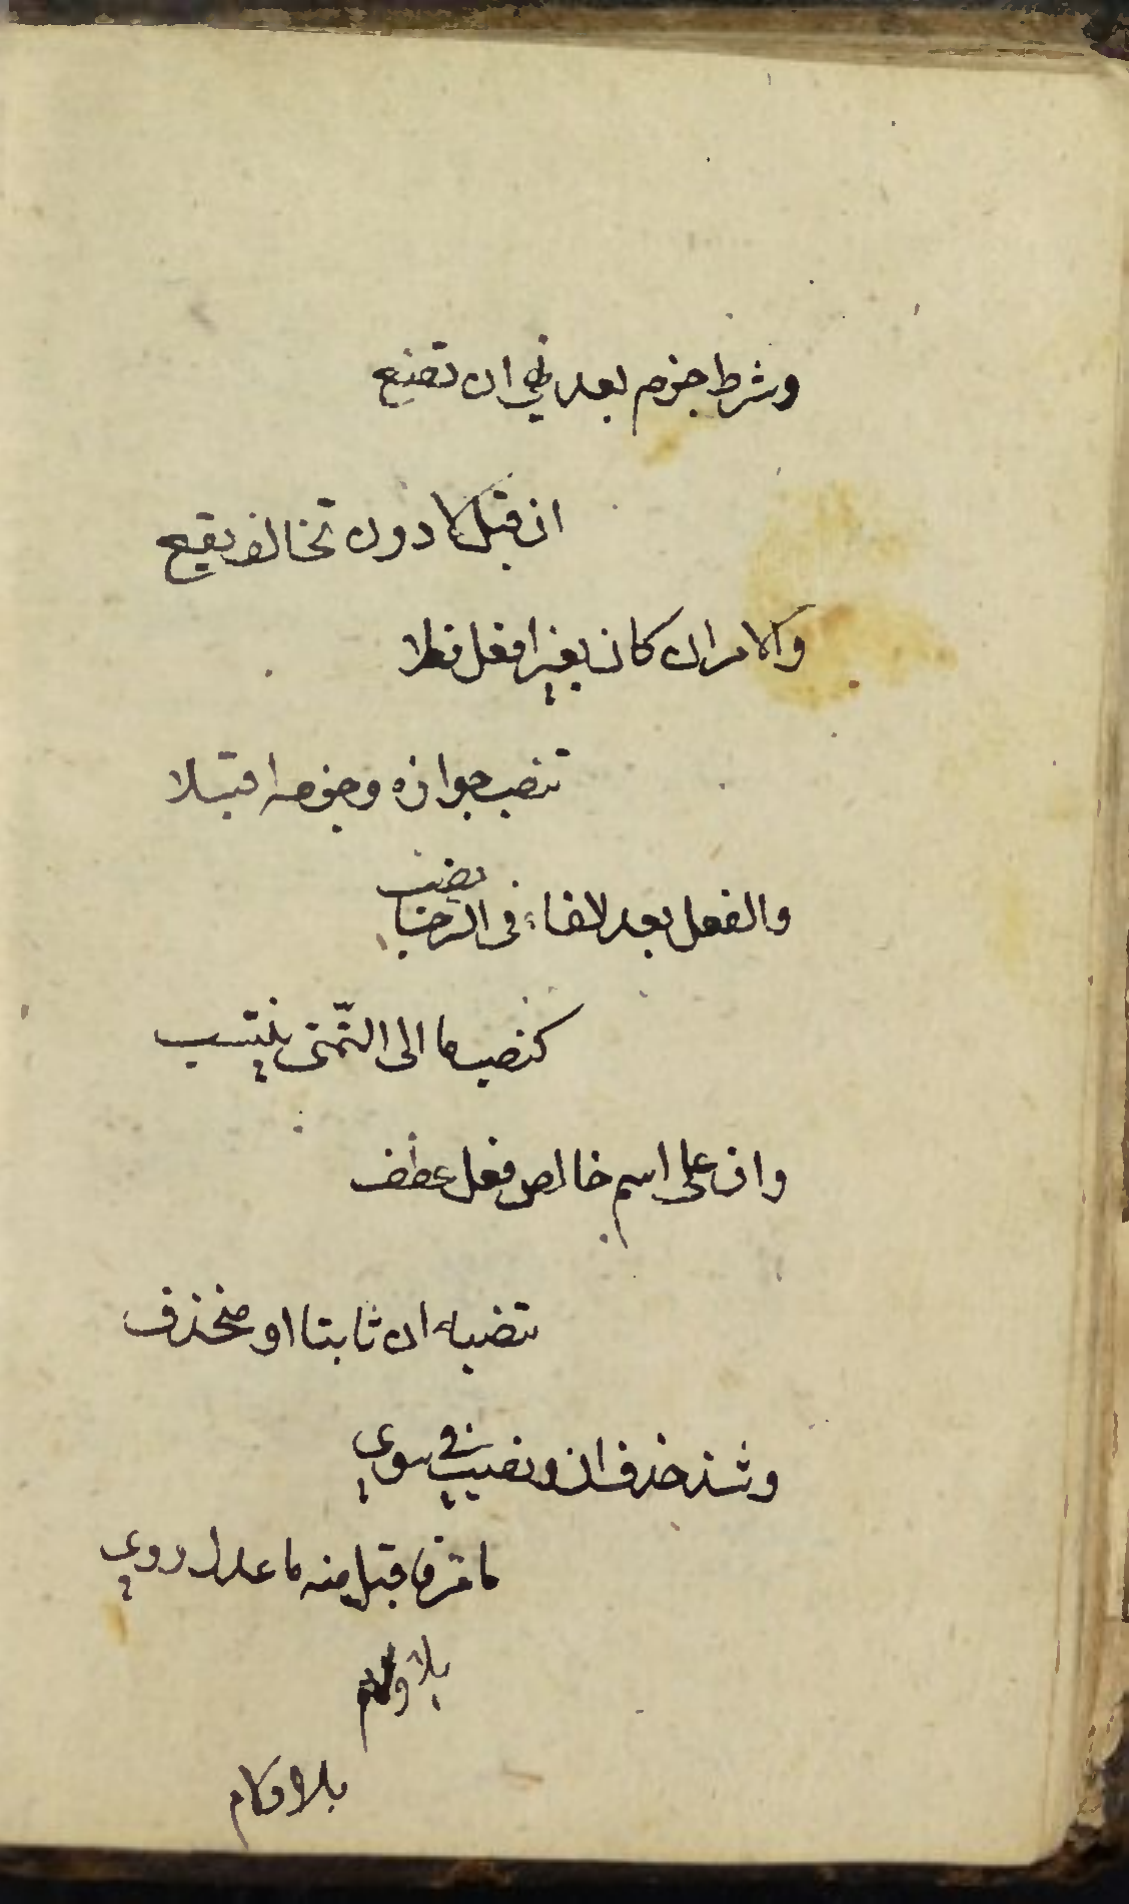 وشرط جزم بعد نهي ان تضع
ان قبل لا دون تخالف يقع
والامر ان كان بغير افعل فلا
تنصب جوابه وجزمه اقبلا
والفعل بعد الفاء في الرجا نصب
كنصب ما الى التمني ينتسب
وان على اسم خالص فعل عطف
تنصبه ان ثابتا او منحذف
وشذ حذف ان ونصب في سوى
ما مر فاقبل منه ما عدل روى
بلا ولام
بلا ولام